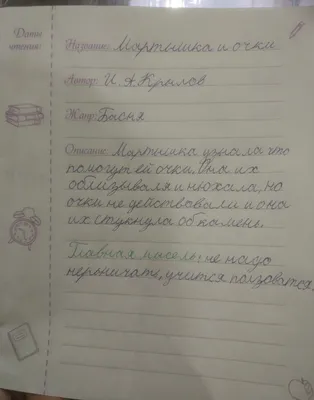 Дата чтения:
Название: Мартышка и очки
Автор: И. А. Крылов
Жанр: Басня
Описание: Мартышка узнала что
помогут ей очки. Она их
облизывала и нюхала, но
очки не действовали и она
их стукнула об камень.
Главная мысель: не надо
нероничать, учится ползоватся.